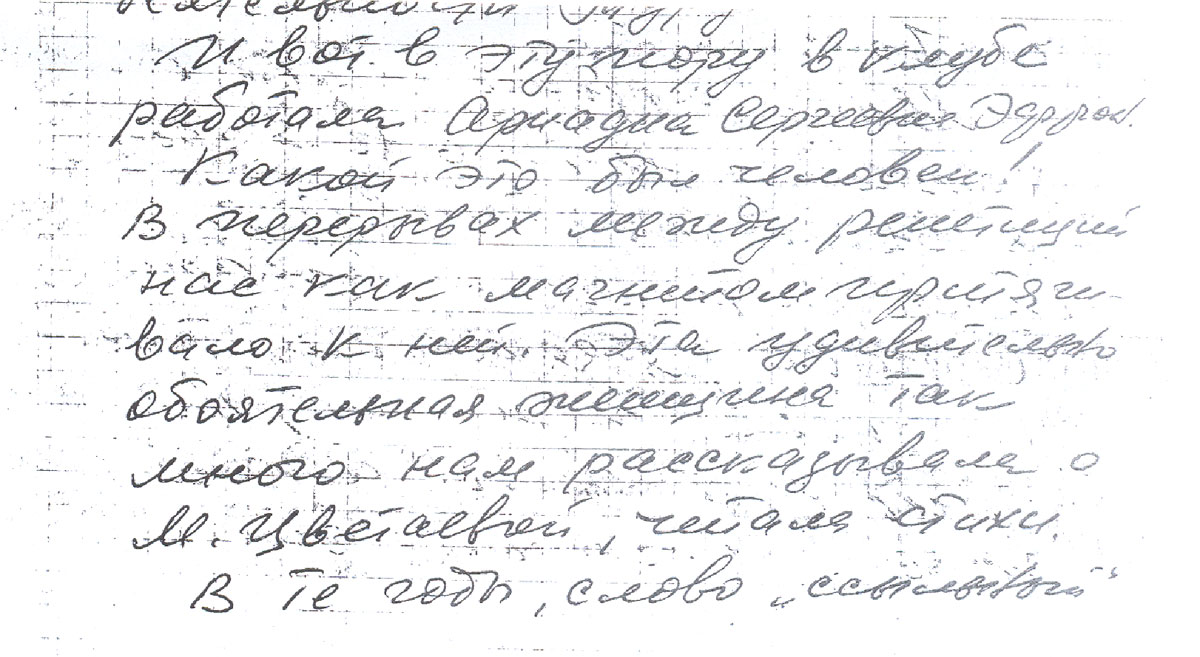 И вот в эту пору в клубе
работала Ариадна Сергеевна Эфрон.
Какой это был человек!
В перерывах между репетиций
нас как магнитом притяги-
вало к ней. Эта удивительно
обоятельная женщина так
много нам рассказывала о
М. Цветаевой, читала стихи.
В те годы, слово „ссыльный"